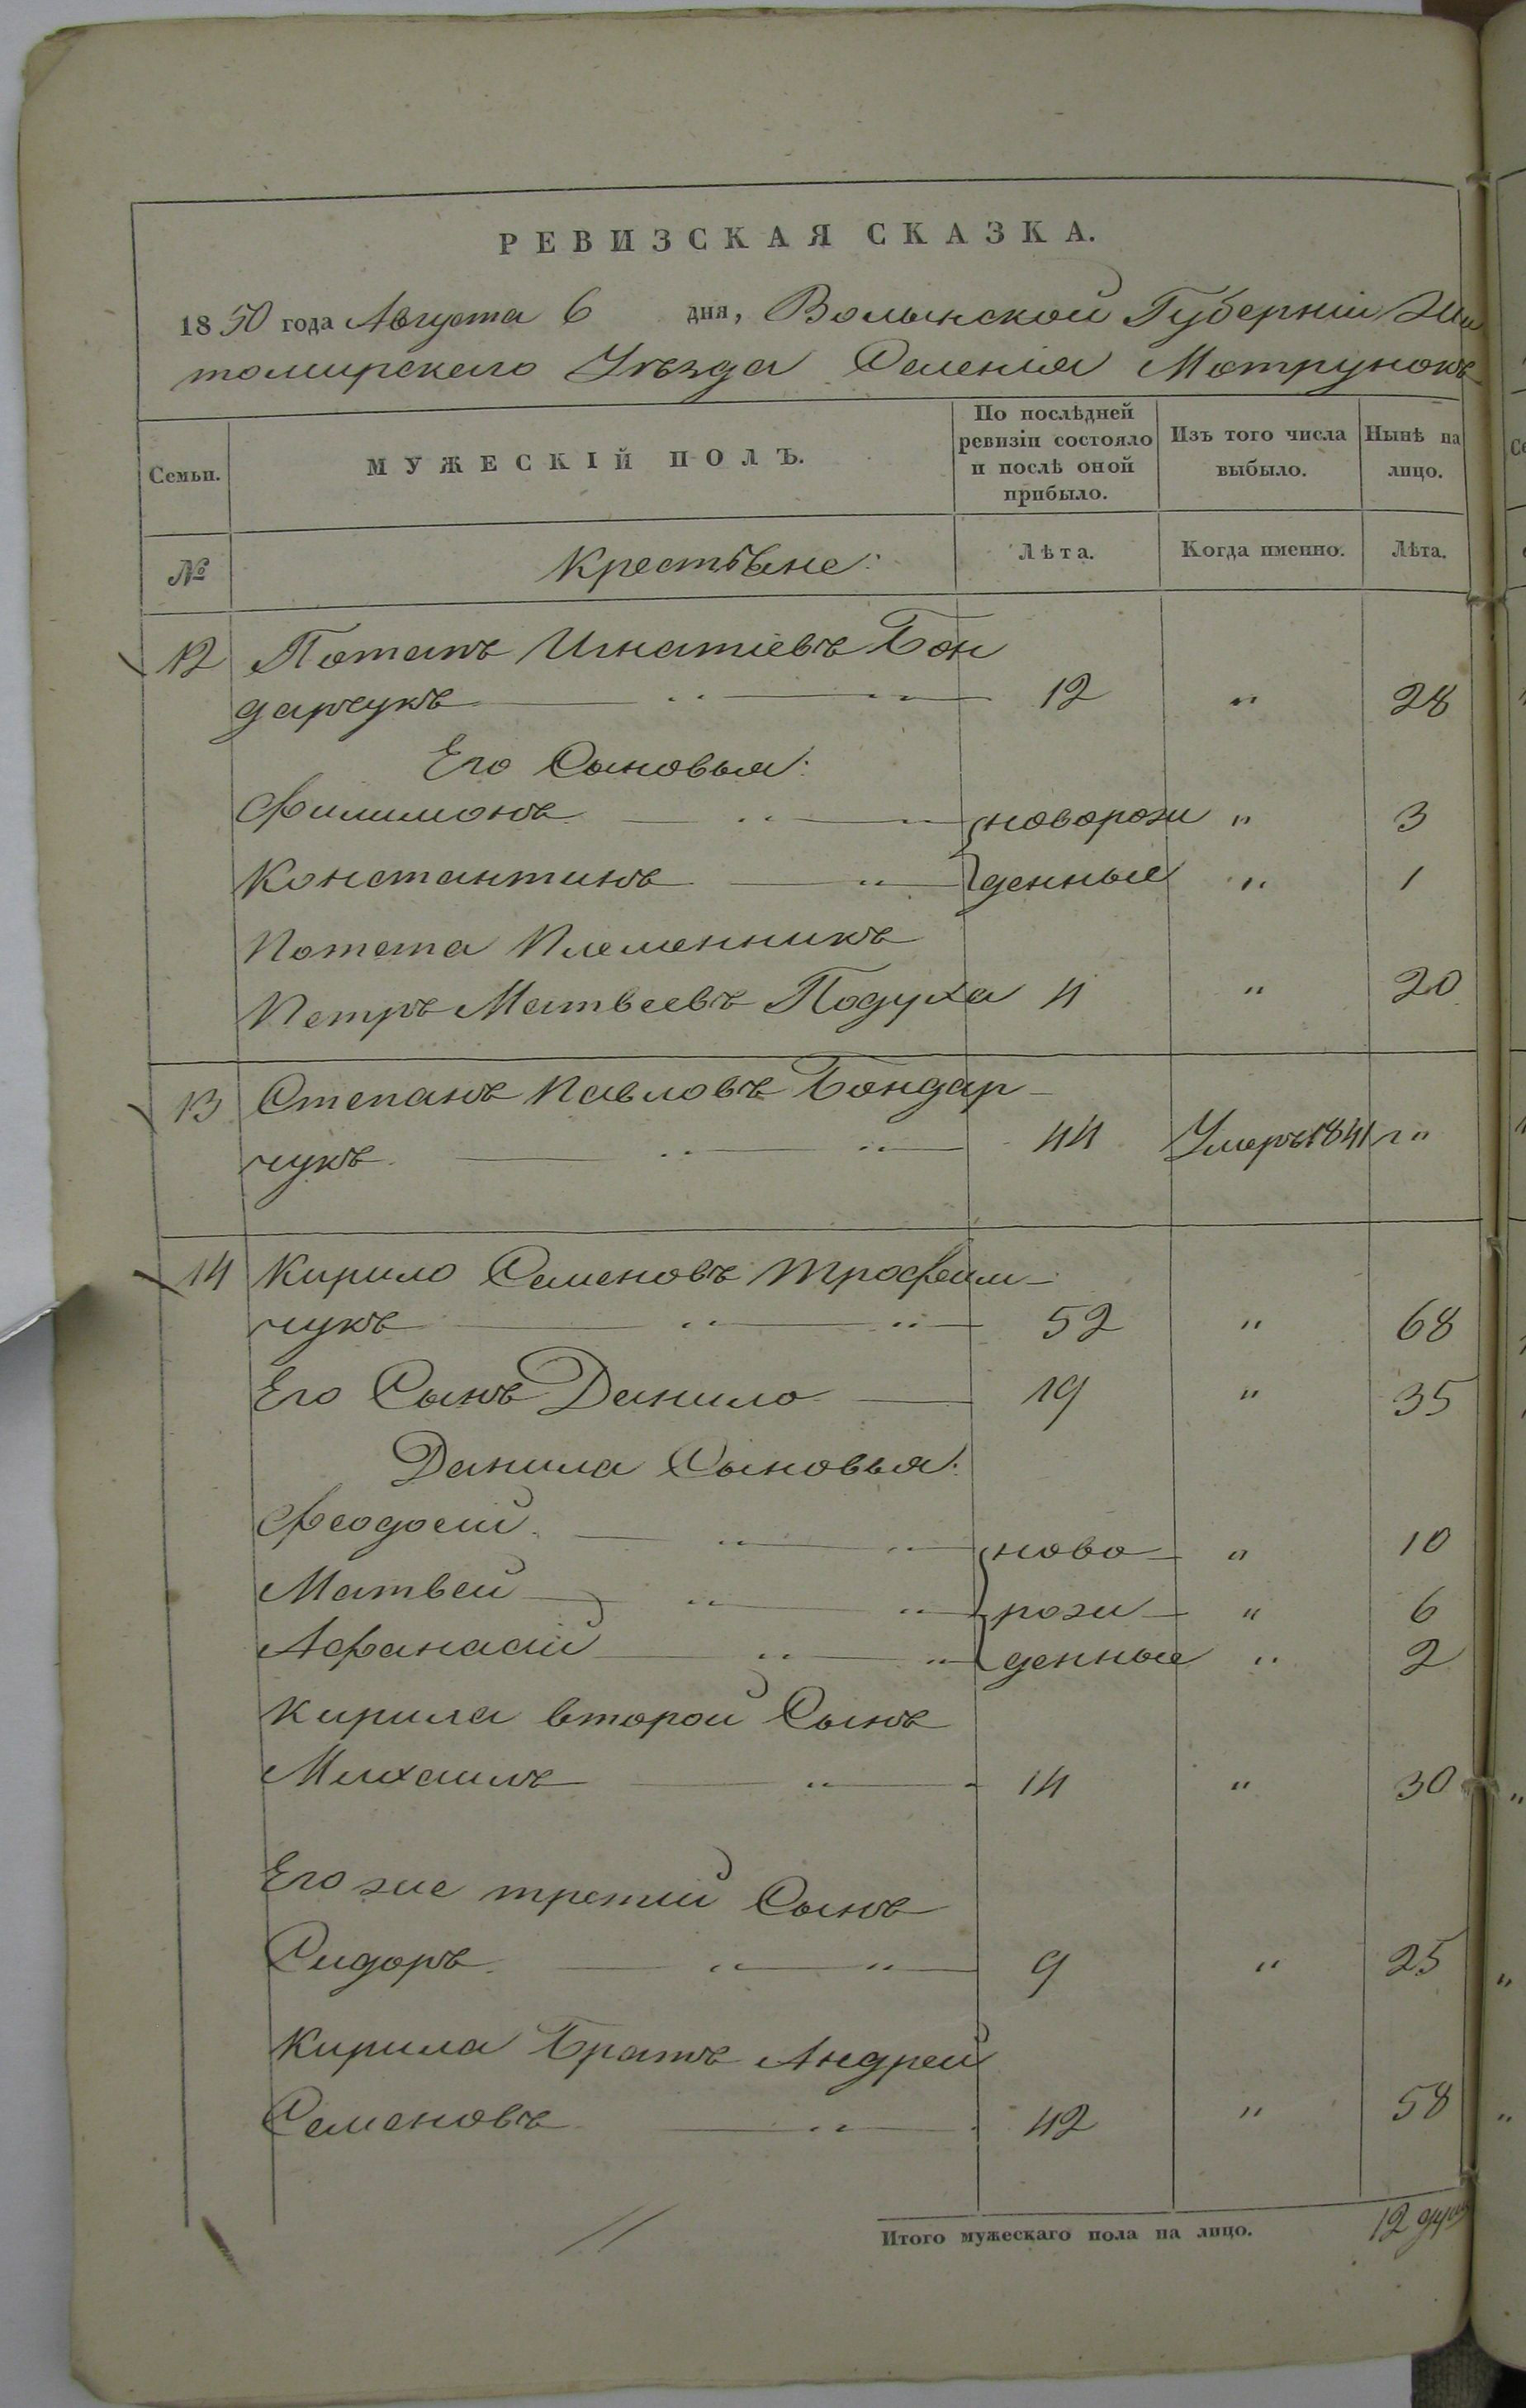 РЕВИЗСКАЯ СКАЗКА.
1850 года Августа 6 дня, Волынской Губерніи Жи
томирскаго Уѣзда Селенія Мотрунокъ
Семьи.
МУЖЕСКІЙ ПОЛЪ.
По послѣдней ревизіи состояло и послѣ оной прибыло.
Изъ того числа выбыло.
Нынѣ на лицо.
№ Крестьяне: Лѣта. Когда именно. Лѣта.
12 Потапъ Игнатіевъ Бон
дарчукъ 12 " 28
Его Сыновья:
Филимонъ новорож " 3
Константинъ денные " 1
Потапа Племенникъ
Петръ Матвеевъ Подуха 4 " 20
13 Степанъ Павловъ Бондар-
чукъ 44 Умеръ 1841 г "
14 Кирило Семеновъ Трофим-
чукъ 52 " 68
Его Сынъ Данило 19 " 35
Данила Сыновья:
Феодосій ново " 10
Матвей рож " 6
Афанасій денные " 2
Кирила второй Сынъ
Михаилъ 14 " 30
Его же третій Сынъ
Сидоръ 9 " 25
Кирила Братъ Андрей
Семеновъ 42 " 58
Итого мужескаго пола на лицо. 12 душ